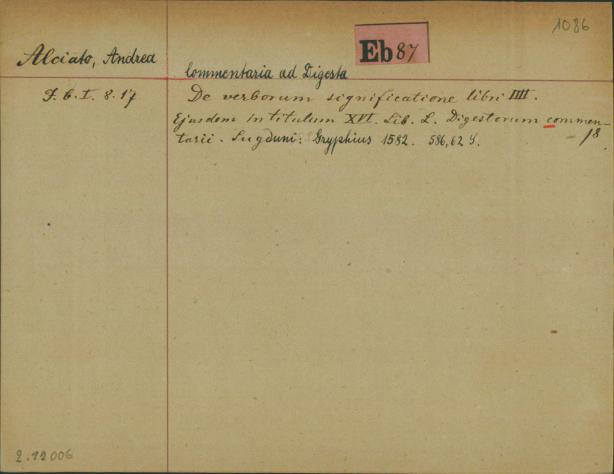 1086
Alciato, Andrea
Eb 87
Commentaria ad Digesta
J. C. I. 8. 17
De verborum significatione libri IIII.
Ejusdem in titulum XVI. Lib. L. Digestorum commen-
tarii. Lugduni: Gryphius 1582. 586,62 S.
- 18
2.12006